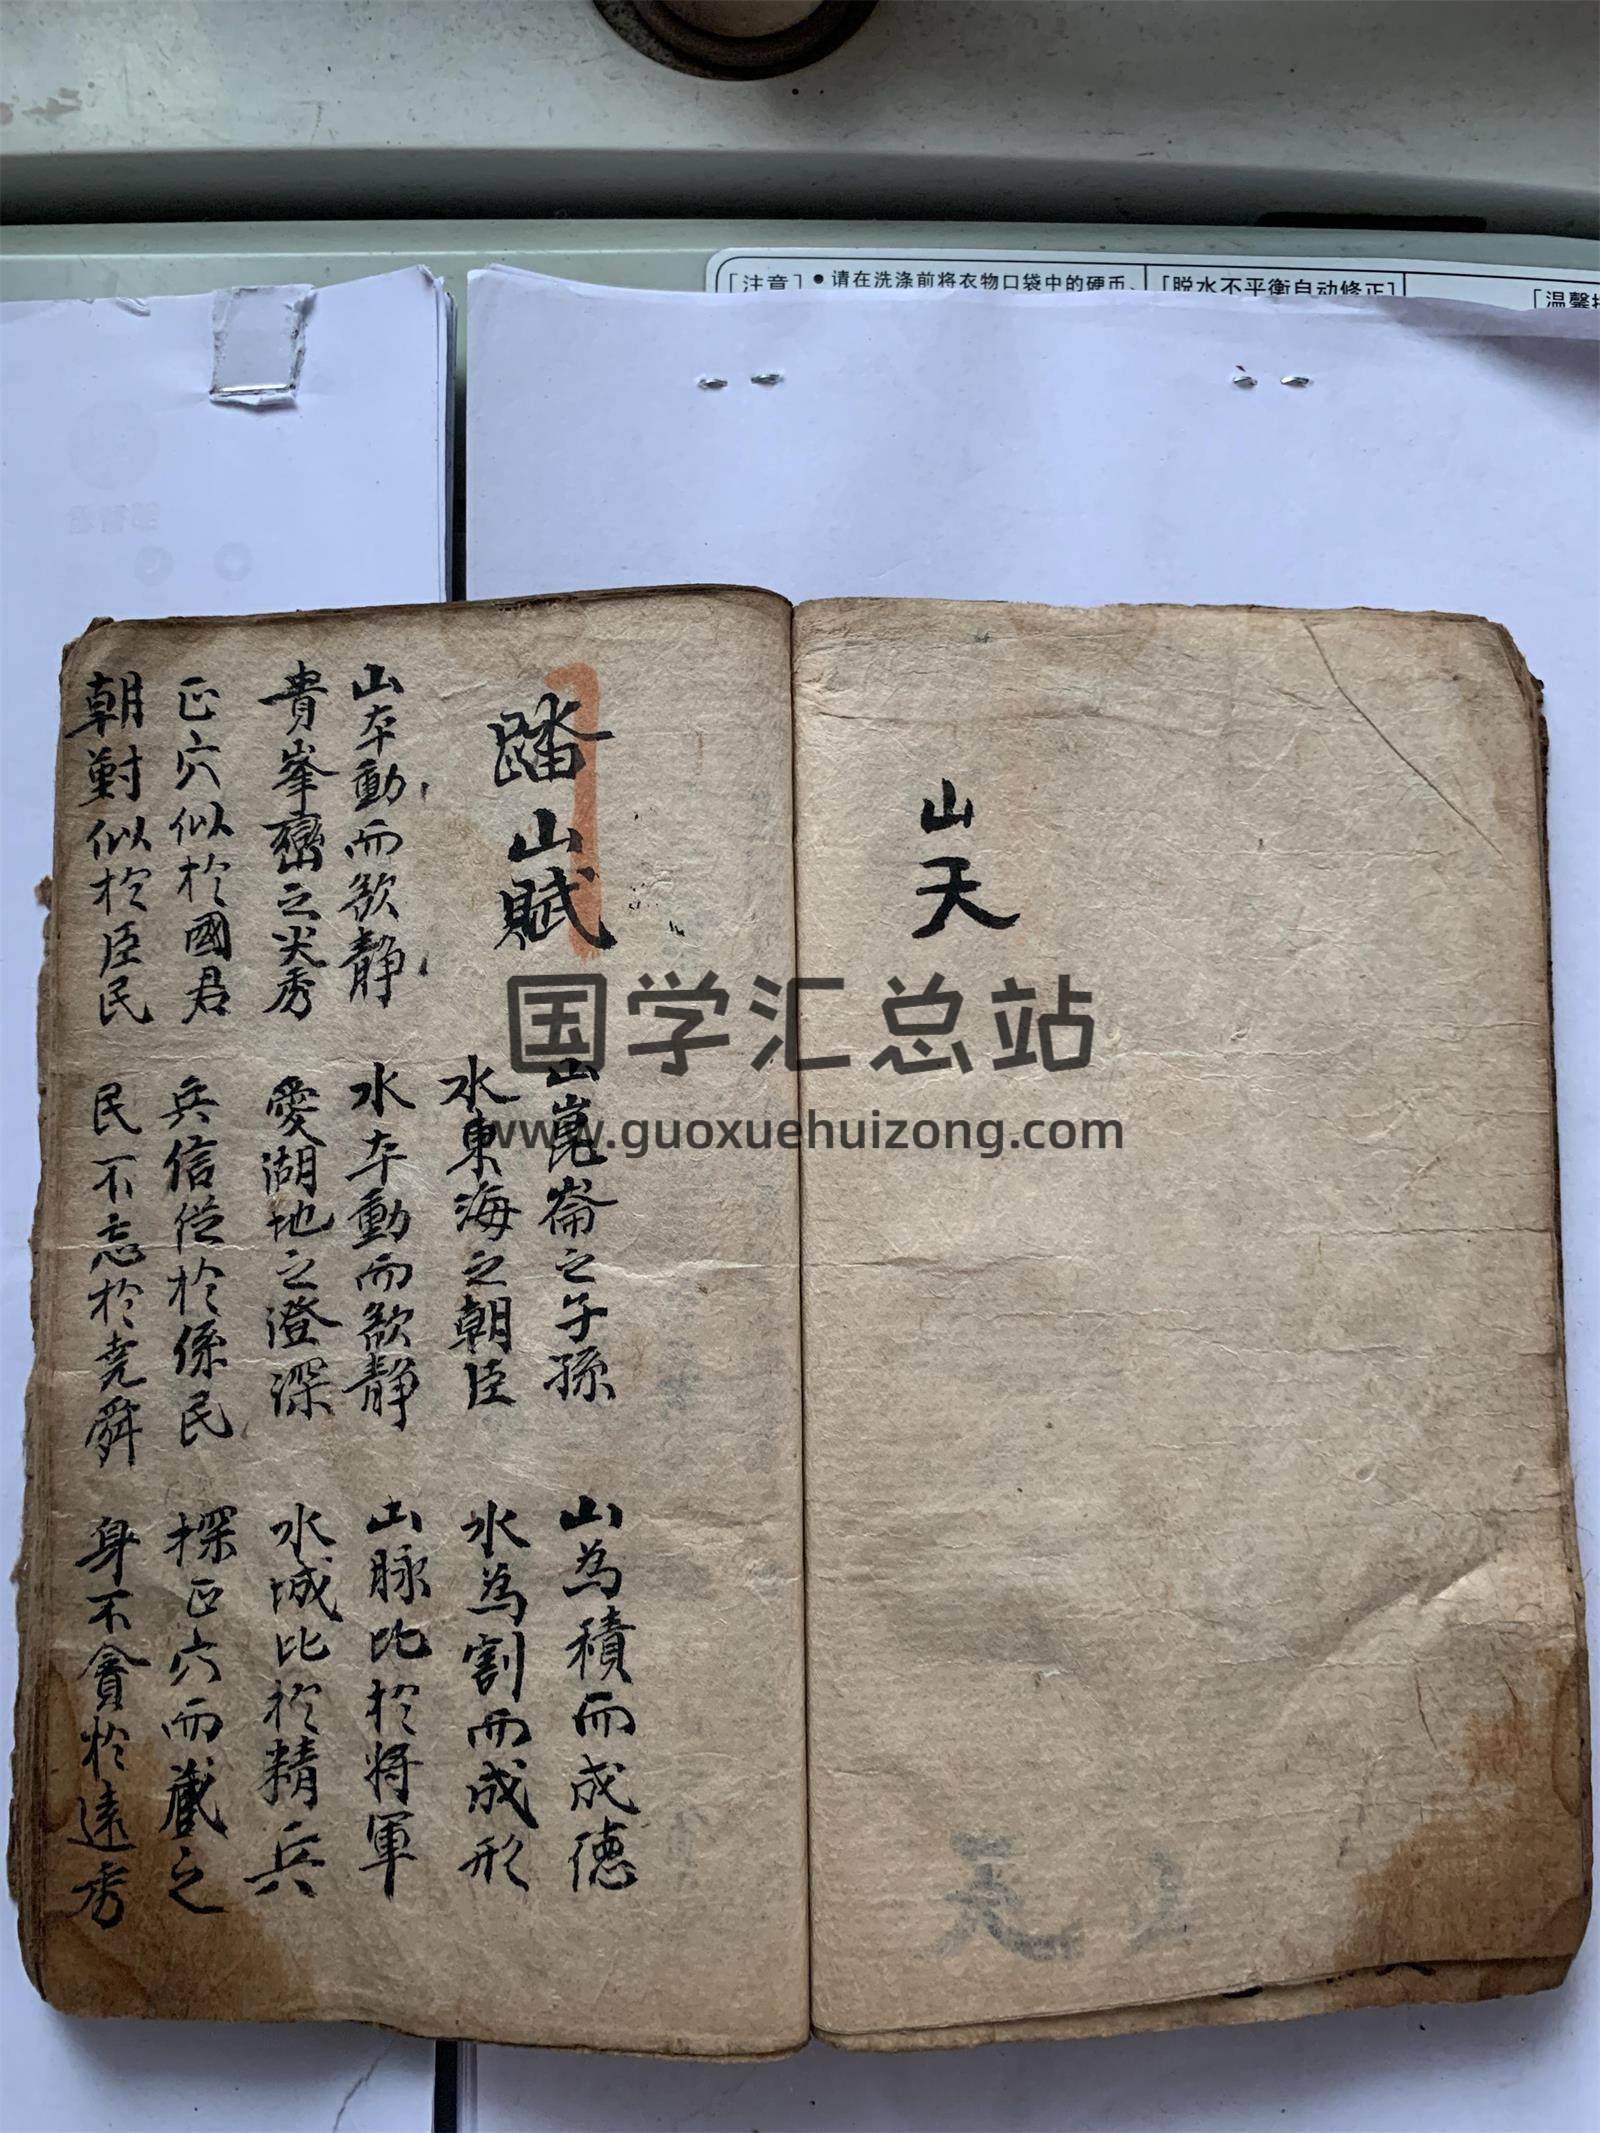 [注意] ●请在洗涤前将衣物口袋中的硬币、
[脱水不平衡自动修正]
[温馨
山天
踏山賦
山崑崙之子孫 山為積而成德
水東海之朝臣 水為割而成形
山夲動而欲静 水夲動而欲静 山脉比於将軍
貴峯巒之尖秀 愛湖地之澄深 水城比於精兵
正穴似於國君 兵信從於係民 探正穴而藏之
朝對似於臣民 民不忘於堯舜 身不貪於遠秀
国学汇总站
www.guoxuehuizong.com